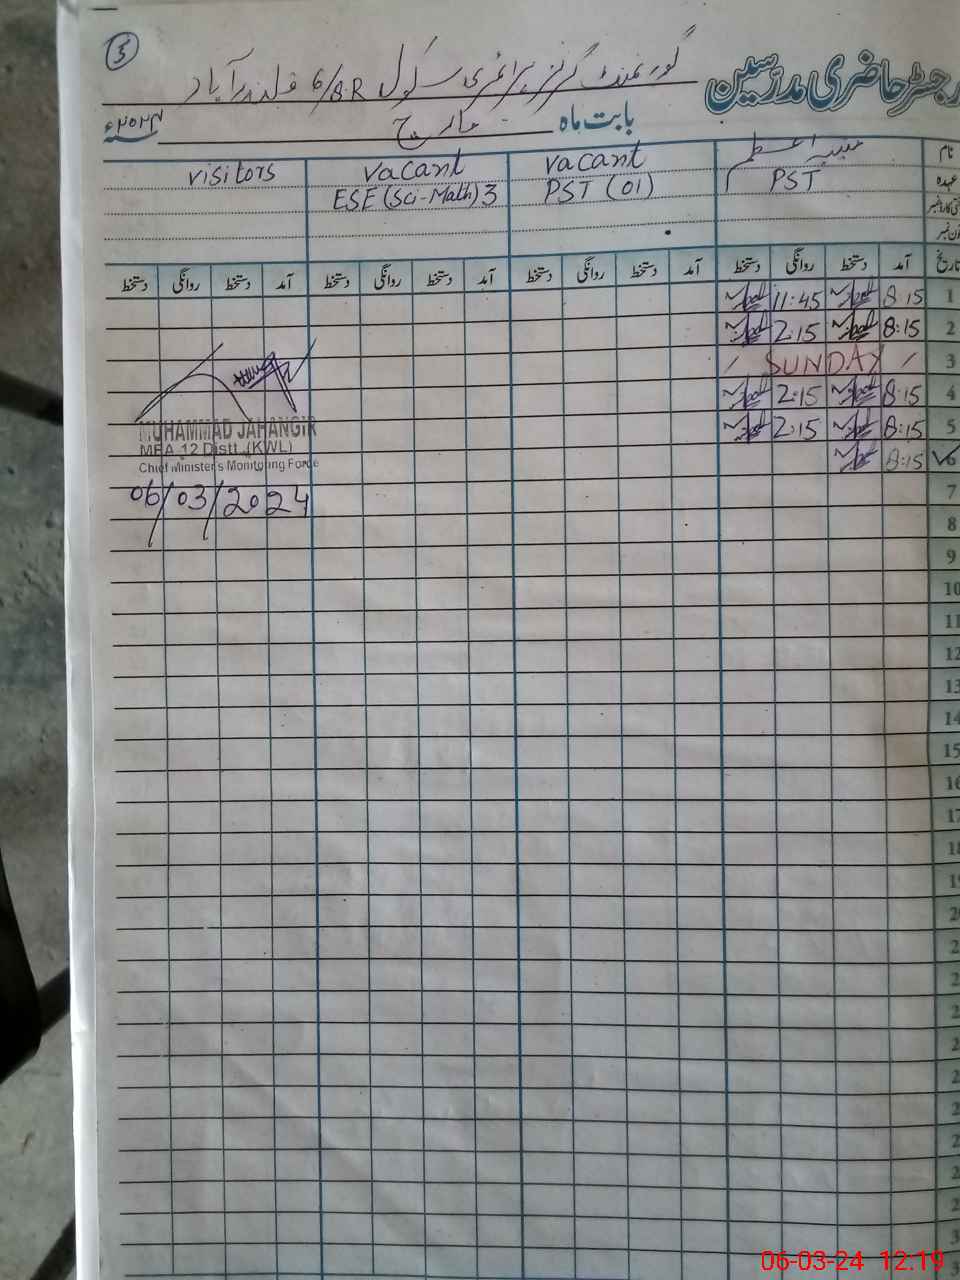 3
رجسٹر حاضری مدرسین
گورنمنٹ گرلز پرائمری سکول 6/8R قلندر آباد
بابت ماہ مارچ ۲۰۲۴ء
نام اعظم vacant vacant visitors
عہدہ PST PST (01) ESE (Sci-Math) 3
فون نمبر
تاریخ آمد دستخط روانگی دستخط آمد دستخط روانگی دستخط آمد دستخط روانگی دستخط آمد دستخط روانگی دستخط
1 8:15 11:45
2 8:15 2:15
3 SUNDAY
4 8:15 2:15
5 8:15 2:15
6 8:15
7
8
9
10
11
12
13
14
15
16
17
18
19
MUHAMMAD JAHANGIR
MEA 12 Distt. (KWL)
Chief Minister's Monitoring Force
06/03/2024
06-03-24 12:19